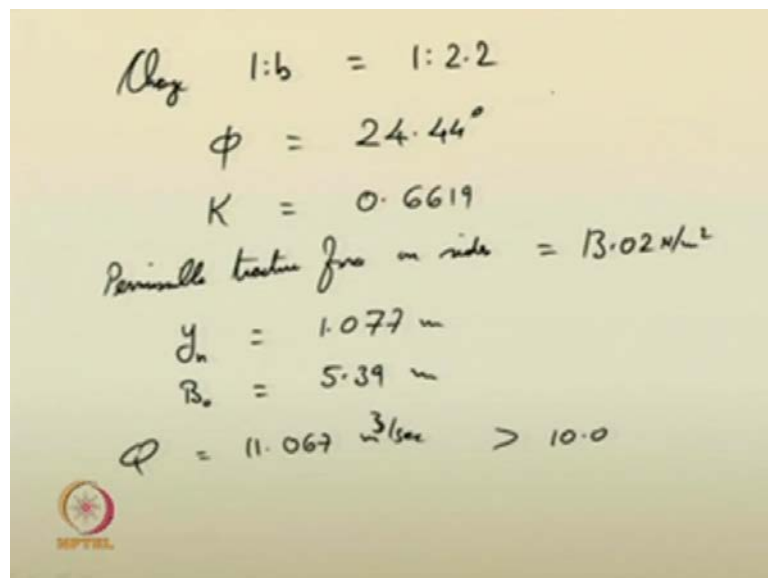 Chag 1:b = 1:2.2
ϕ = 24.44°
K = 0.6619
Permissible tractive force on sides = 13.02 N/m²
yₙ = 1.077 m
B₀ = 5.39 m
Q = 11.067 m³/sec > 10.0
NPTEL